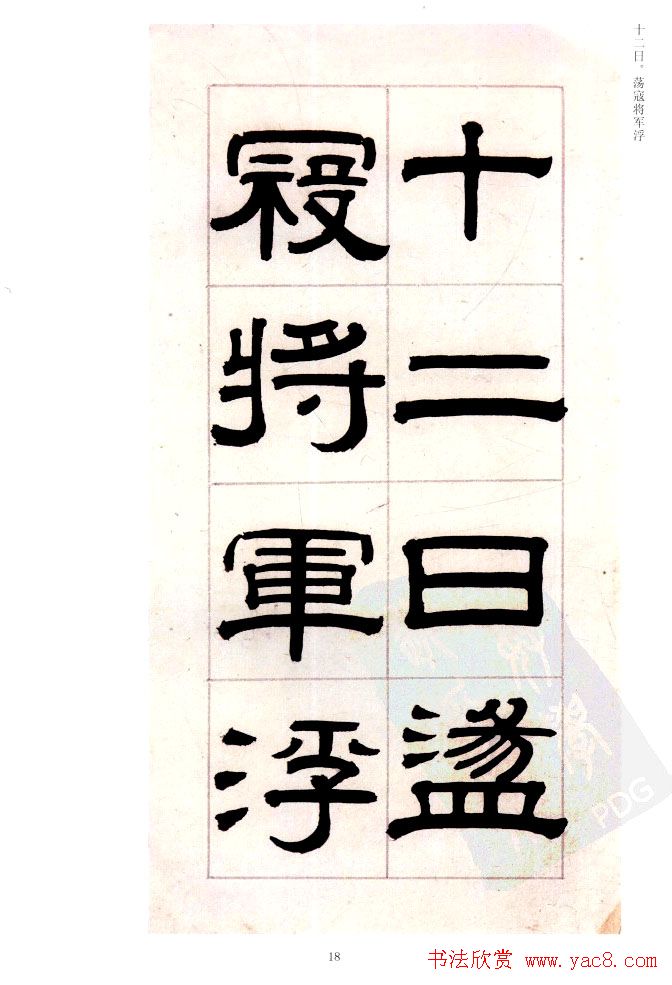 十二日。荡寇将军浮
十二日盪
寇將軍浮
PDG
18
书法欣赏 www.yac8.com